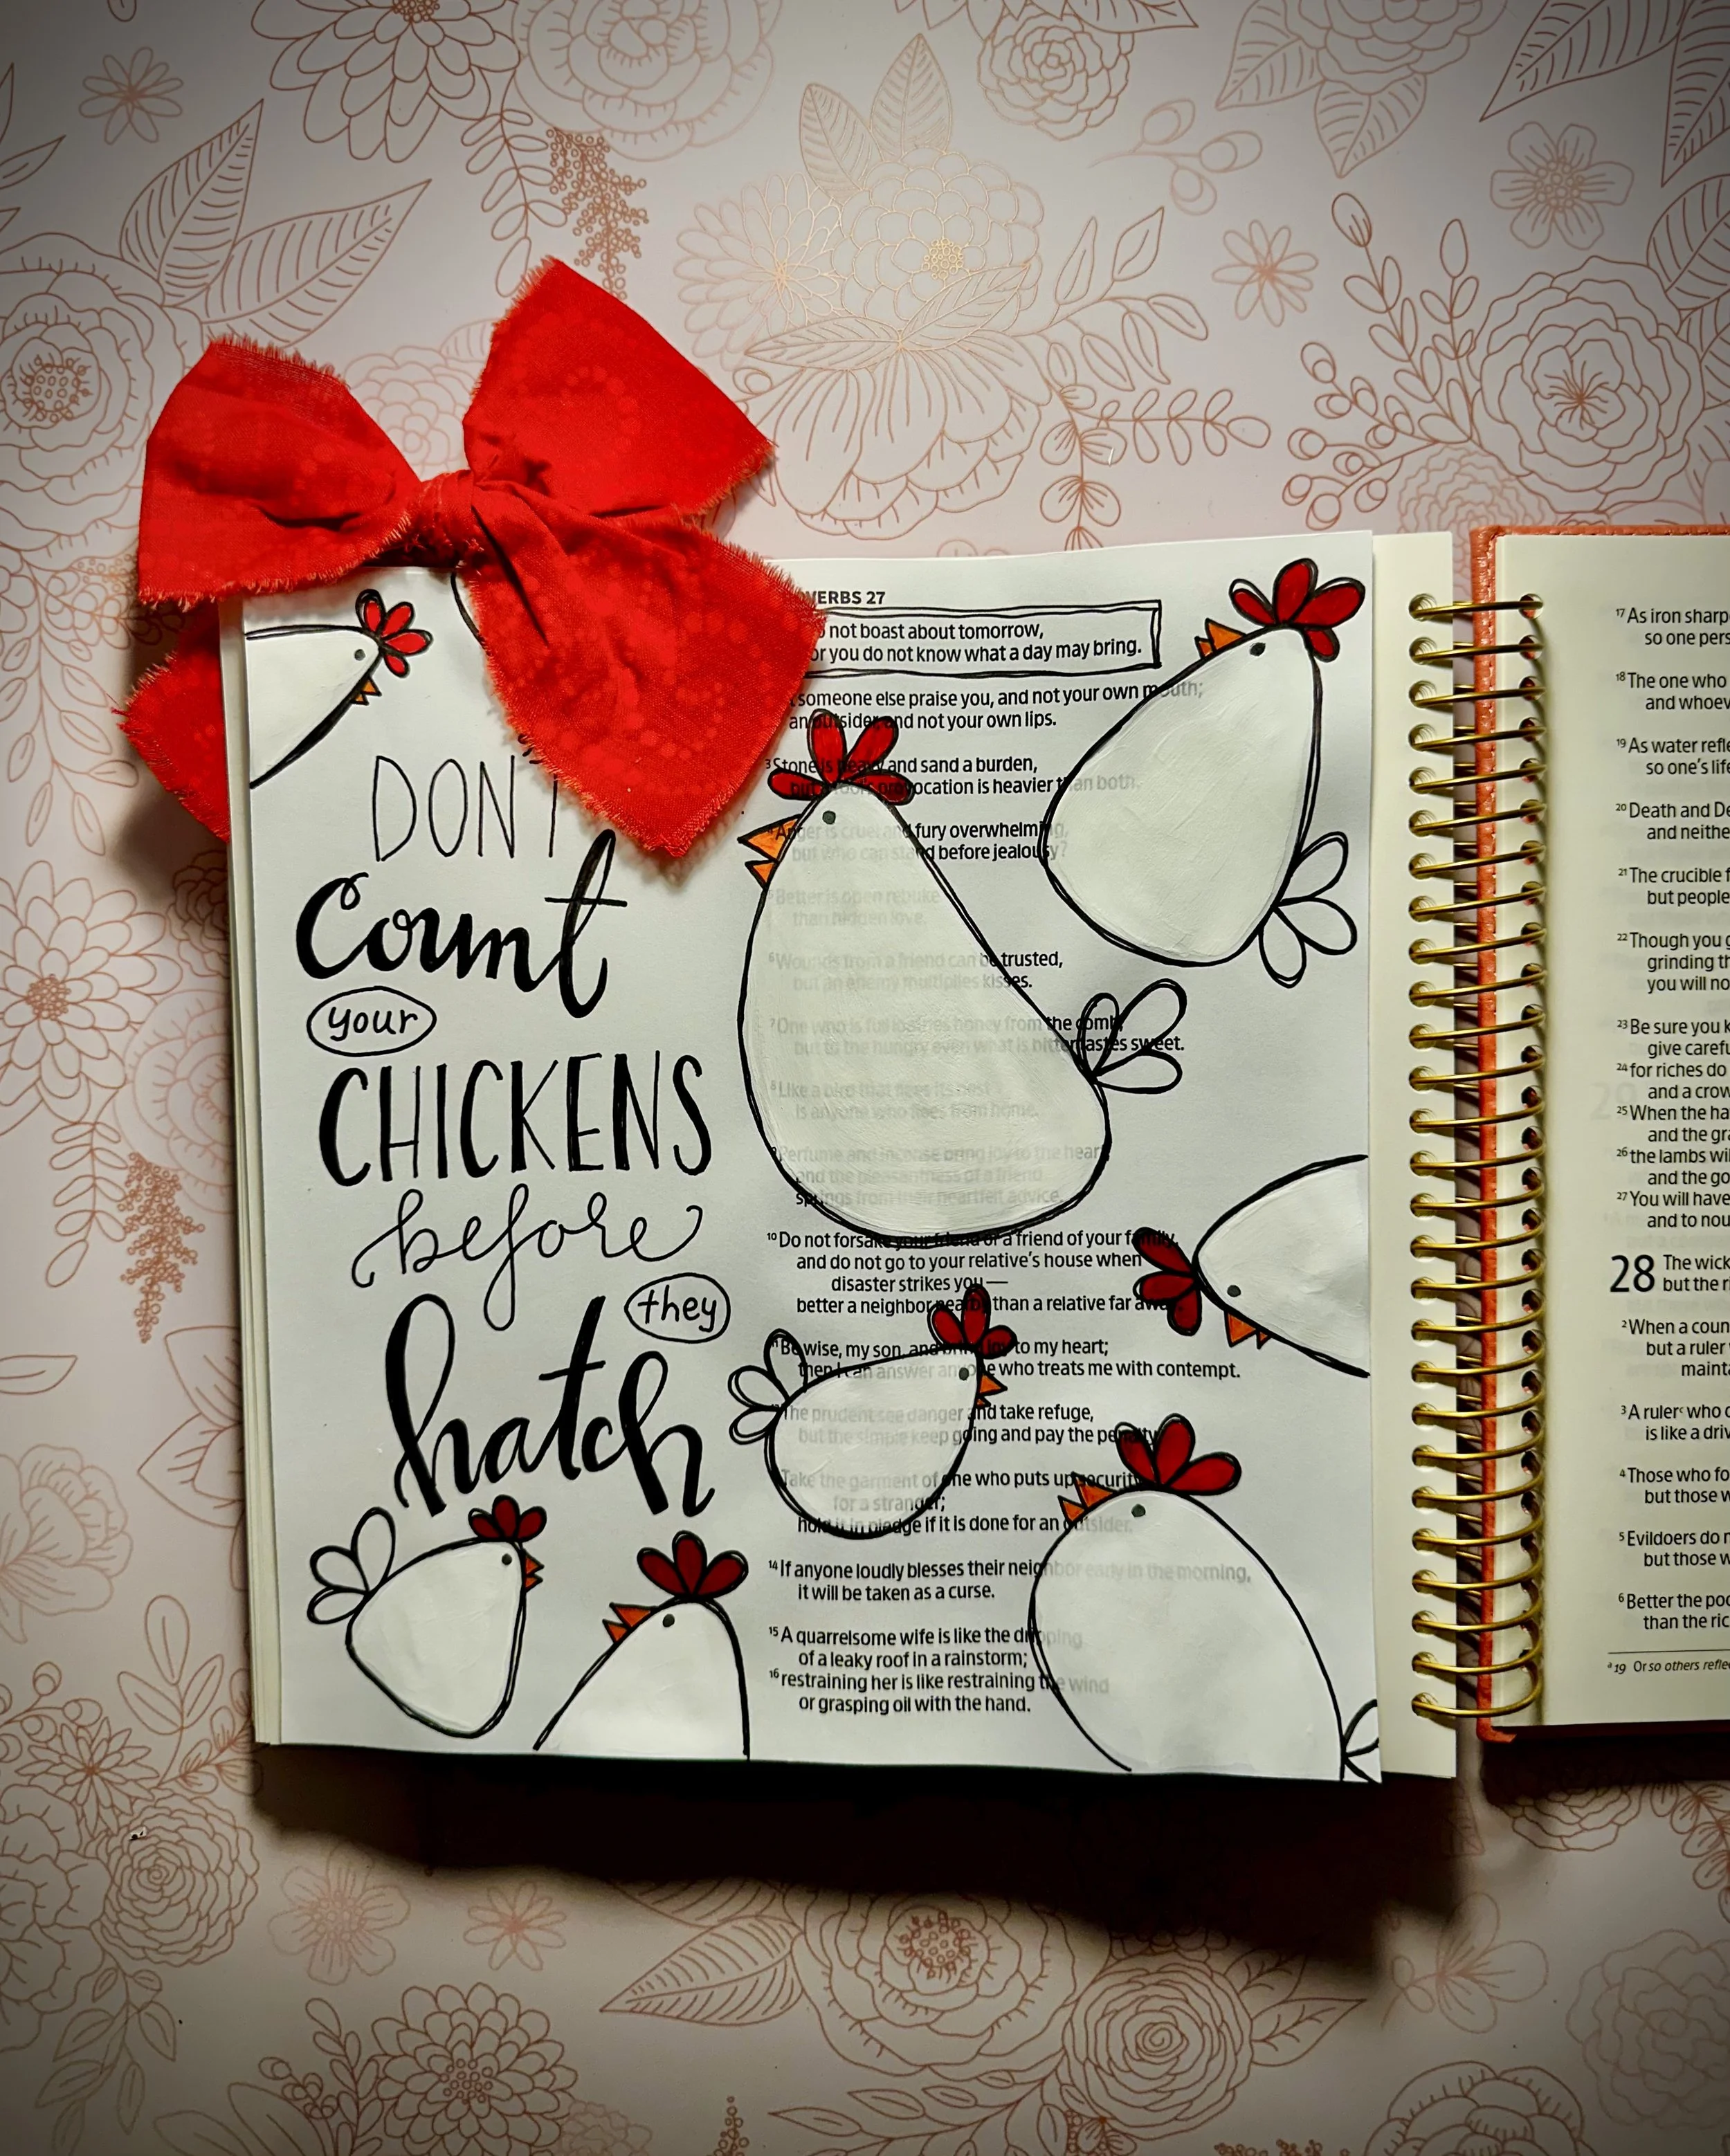 DON'T
Count
your
CHICKENS
before
they
hatch
VERBS 27
not boast about tomorrow,
or you do not know what a day may bring.
someone else praise you, and not your own mouth;
an outsider, and not your own lips.
3 Stone is heavy and sand a burden,
but a fool's provocation is heavier than both.
4 Anger is cruel and fury overwhelming,
but who can stand before jealousy?
5 Better is open rebuke
than hidden love.
6 Wounds from a friend can be trusted,
but an enemy multiplies kisses.
7 One who is full loathes honey from the comb,
but to the hungry even what is bitter tastes sweet.
8 Like a bird that flees its nest
is anyone who flees from home.
9 Perfume and incense bring joy to the heart,
and the pleasantness of a friend
springs from their heartfelt advice.
10 Do not forsake your friend or a friend of your family,
and do not go to your relative's house when
disaster strikes you—
better a neighbor nearby than a relative far away.
11 Be wise, my son, and bring joy to my heart;
then I can answer anyone who treats me with contempt.
12 The prudent see danger and take refuge,
but the simple keep going and pay the penalty.
Take the garment of one who puts up security
for a stranger;
hold it in pledge if it is done for an outsider.
14 If anyone loudly blesses their neighbor early in the morning,
it will be taken as a curse.
15 A quarrelsome wife is like the dripping
of a leaky roof in a rainstorm;
16 restraining her is like restraining the wind
or grasping oil with the hand.
17 As iron sharp
so one pers
18 The one who
and whoev
19 As water refle
so one's life
20 Death and De
and neithe
21 The crucible f
but people
22 Though you g
grinding th
you will no
23 Be sure you k
give carefu
24 for riches do
and a crow
25 When the ha
and the gra
26 the lambs wil
and the go
27 You will have
and to nou
28 The wick
but the r
2 When a coun
but a ruler
mainta
3 A ruler c who o
is like a driv
4 Those who fo
but those w
5 Evildoers do n
but those w
6 Better the poo
than the ric
a 19 Or so others refle